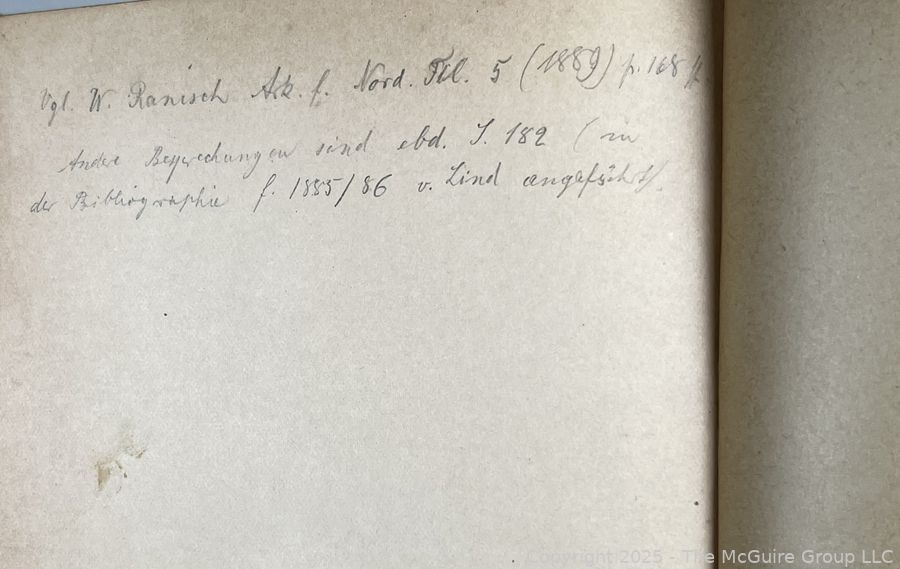 Vgl. W. Ranisch Ark. f. Nord. Fil. 5 (1889) p. 168 ff.
Andere Besprechungen sind ebd. S. 182 (in
der Bibliographie f. 1885/86 v. Lind angeführt).
Copyright 2025 - The McGuire Group LLC